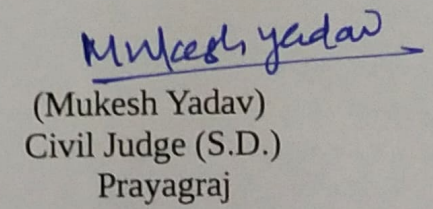 Mukesh Yadav
(Mukesh Yadav)
Civil Judge (S.D.)
Prayagraj